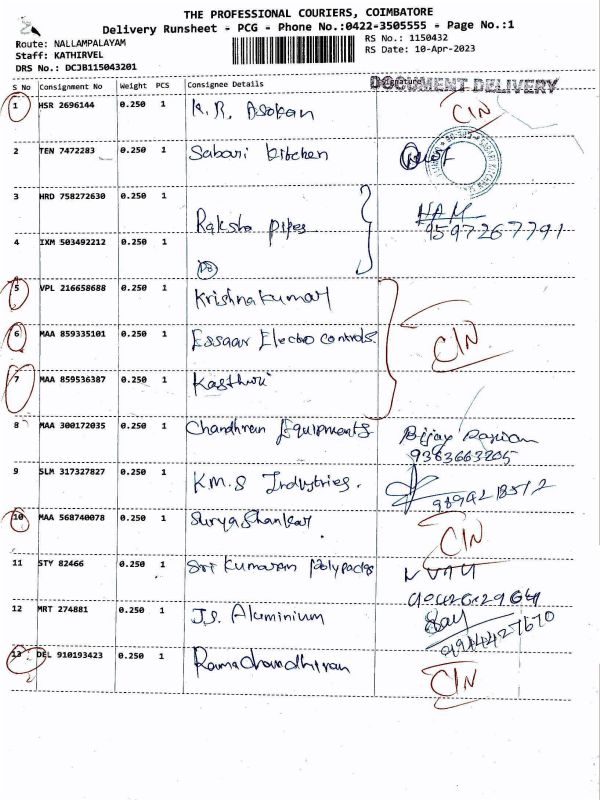 THE PROFESSIONAL COURIERS, COIMBATORE
Delivery Runsheet - PCG - Phone No.:0422-3505555 - Page No.:1
Route: NALLAMPALAYAM RS No.: 1150432
Staff: KATHIRVEL RS Date: 10-Apr-2023
DRS No.: DCJB115043201
S No Consignment No Weight PCS Consignee Details Signature DOCUMENT DELIVERY
1 MSR 2696144 0.250 1 K.R. Asokan CIN
2 TEN 7472283 0.250 1 Sabari kitchen
3 HRD 758272630 0.250 1
Raksha pipes 9597267791
4 IXM 503492212 0.250 1
5 VPL 216658688 0.250 1 Krishnakumar
6 MAA 859335101 0.250 1 Essaar Electro controls. CIN
7 MAA 859536387 0.250 1 Kasthuri
8 MAA 300172035 0.250 1 Chandhran Equipments Bijay
9383663205
9 SLM 317327827 0.250 1 K.M.S Industries.
10 MAA 568740078 0.250 1 Surya Shankar CIN
11 STY 82466 0.250 1 Sri Kumaran Polypacks
12 MRT 274881 0.250 1 J.S. Aluminium
13 DEL 910193423 0.250 1 Ramachandhiran CIN